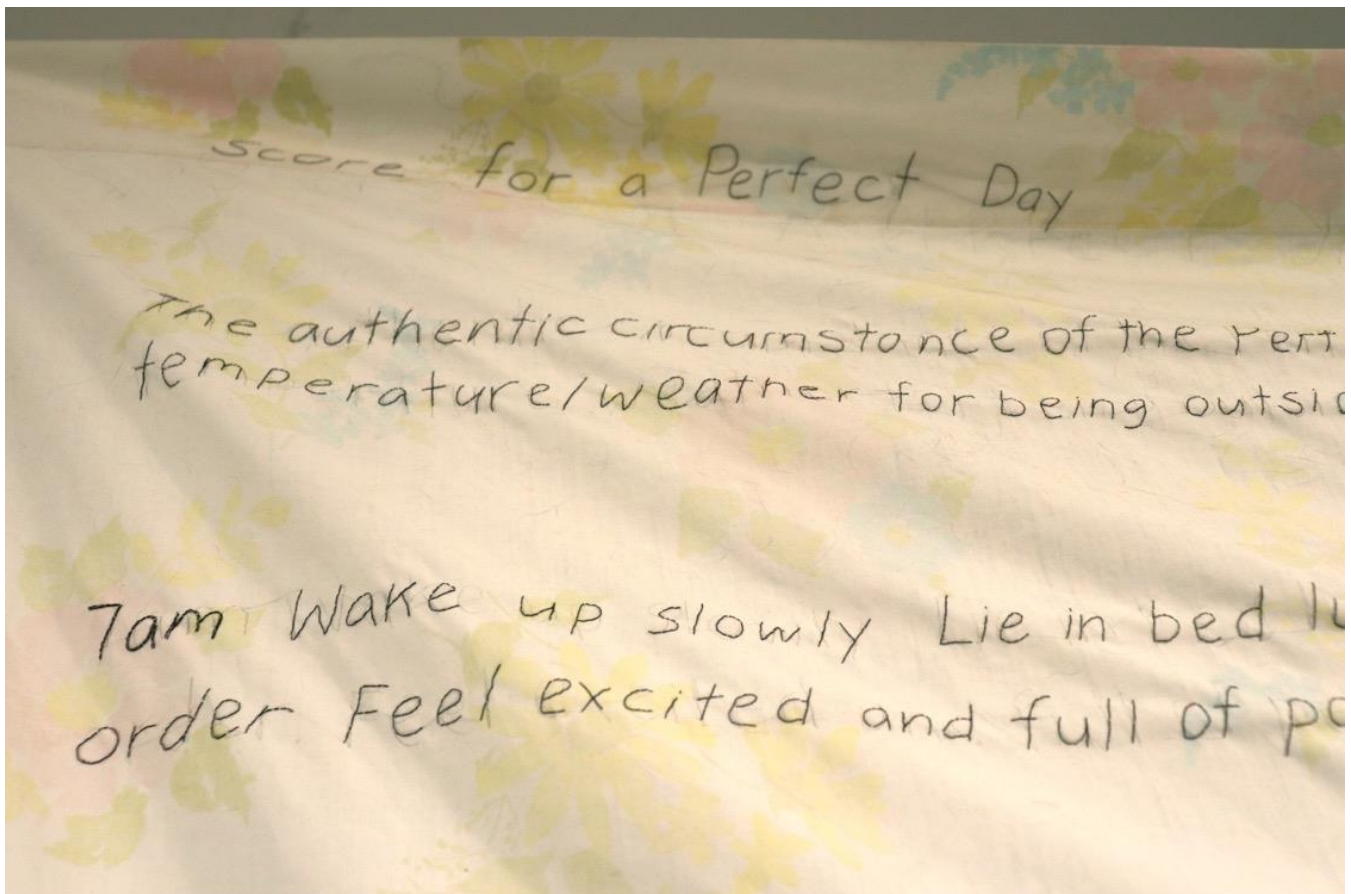 Score for a Perfect Day
The authentic circumstance of the
temperature/weather for being
7am Wake up slowly Lie in bed
order Feel excited and full of